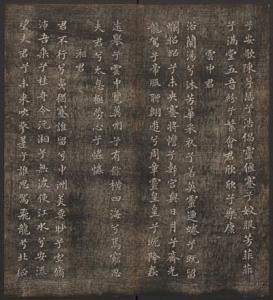 兮安歌陳竽瑟兮浩倡靈偃蹇兮姣服芳菲菲
兮滿堂五音紛兮繁會君欣欣兮樂康
雲中君
浴蘭湯兮沐芳華采衣兮若英靈連蜷兮既留
爛昭昭兮未央蹇將憺兮壽宮與日月兮齊光
龍駕兮帝服聊翱遊兮周章靈皇皇兮既降猋
遠舉兮雲中覽冀州兮有餘橫四海兮焉窮思
夫君兮太息極勞心兮忡忡
湘君
君不行兮夷猶蹇誰留兮中洲美要眇兮宜脩
沛吾乘兮桂舟令沅湘兮無波使江水兮安流
望夫君兮未來吹參差兮誰思駕飛龍兮北征